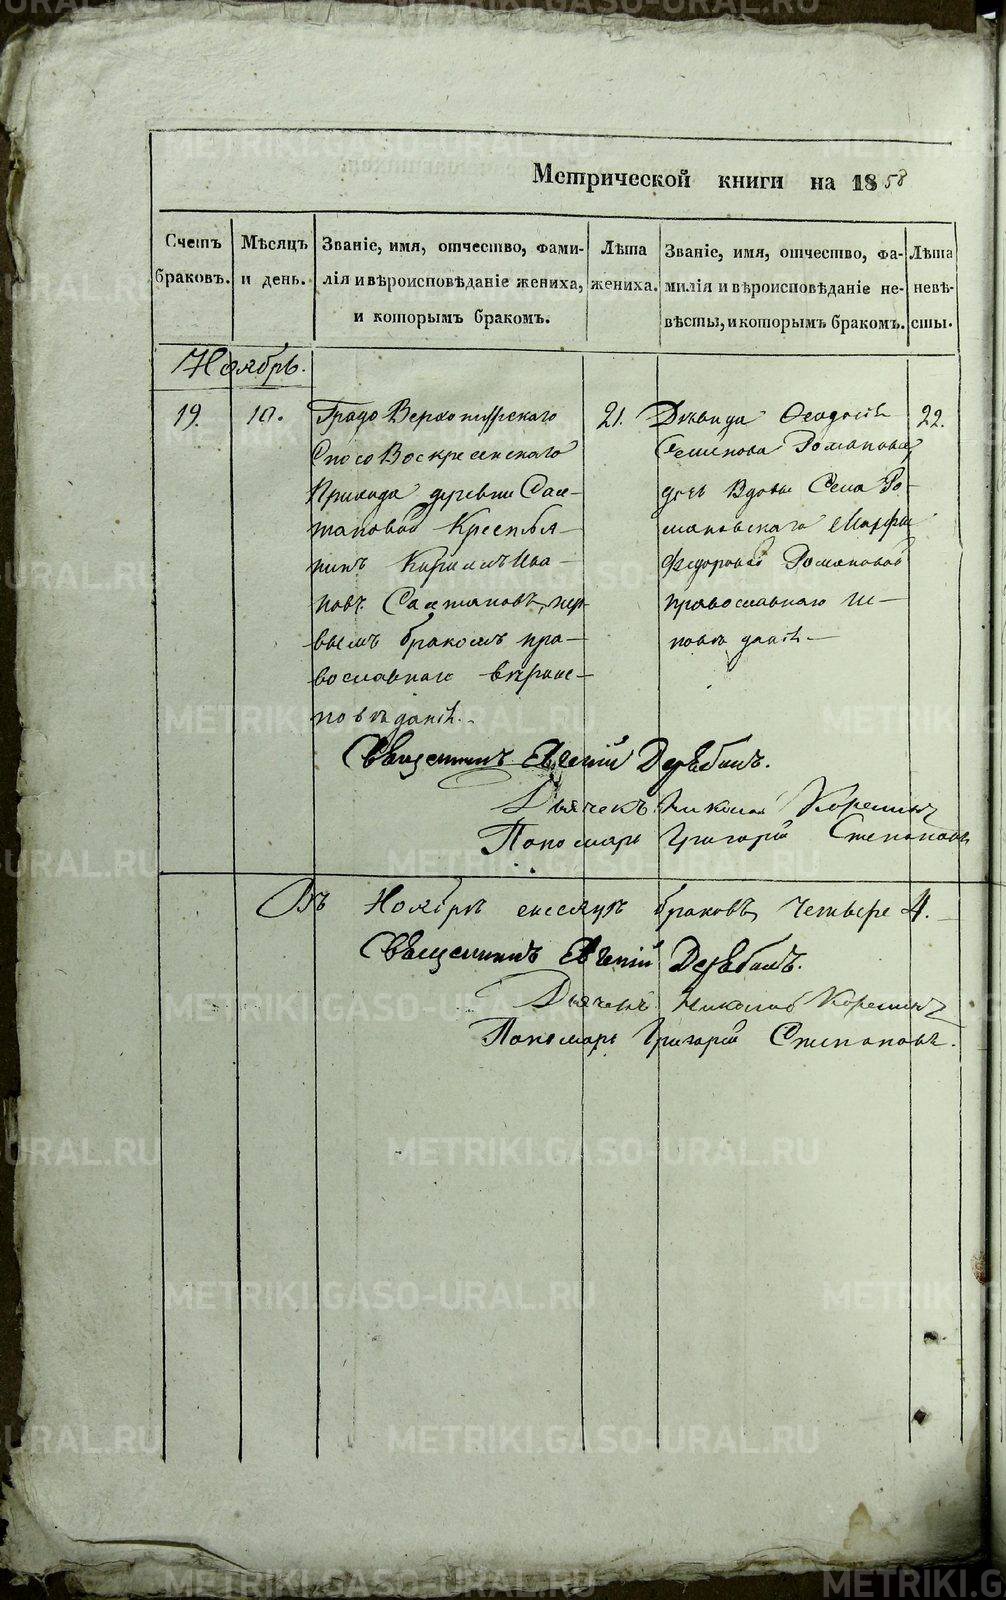 Метрической книги на 1858
Счетъ браковъ.
Мѣсяцъ и день.
Званіе, имя, отчество, фами-
лія и вѣроисповѣданіе жениха,
и которымъ бракомъ.
Лѣта жениха.
Званіе, имя, отчество, фа-
милія и вѣроисповѣданіе не-
вѣсты, и которымъ бракомъ.
Лѣта невѣ-
сты.
Ноябрь.
19.
10.
Градо Верхотурскаго
Спасо Воскресенскаго
Прихода деревни Сал-
тановой Крестья-
нинъ Кириллъ Ива-
новъ Салтановъ, пер-
вымъ бракомъ пра-
вославнаго вѣроис-
повѣданія.
21.
Дѣвица Ѳеодосія
Семенова Романова,
дочь Вдовы Села Ро-
мановскаго Марфы
Федоровой Романовой
православнаго ис-
повѣданія.
22.
Священникъ Евгеній Дерябинъ.
Дьячекъ Николай
Пономарь Григорій Степановъ
Въ Ноябрѣ мѣсяцѣ браковъ Четыре 4.
Священникъ Евгеній Дерябинъ.
Дьячекъ Николай
Пономарь Григорій Степановъ.
METRIKI.GASO-URAL.RU